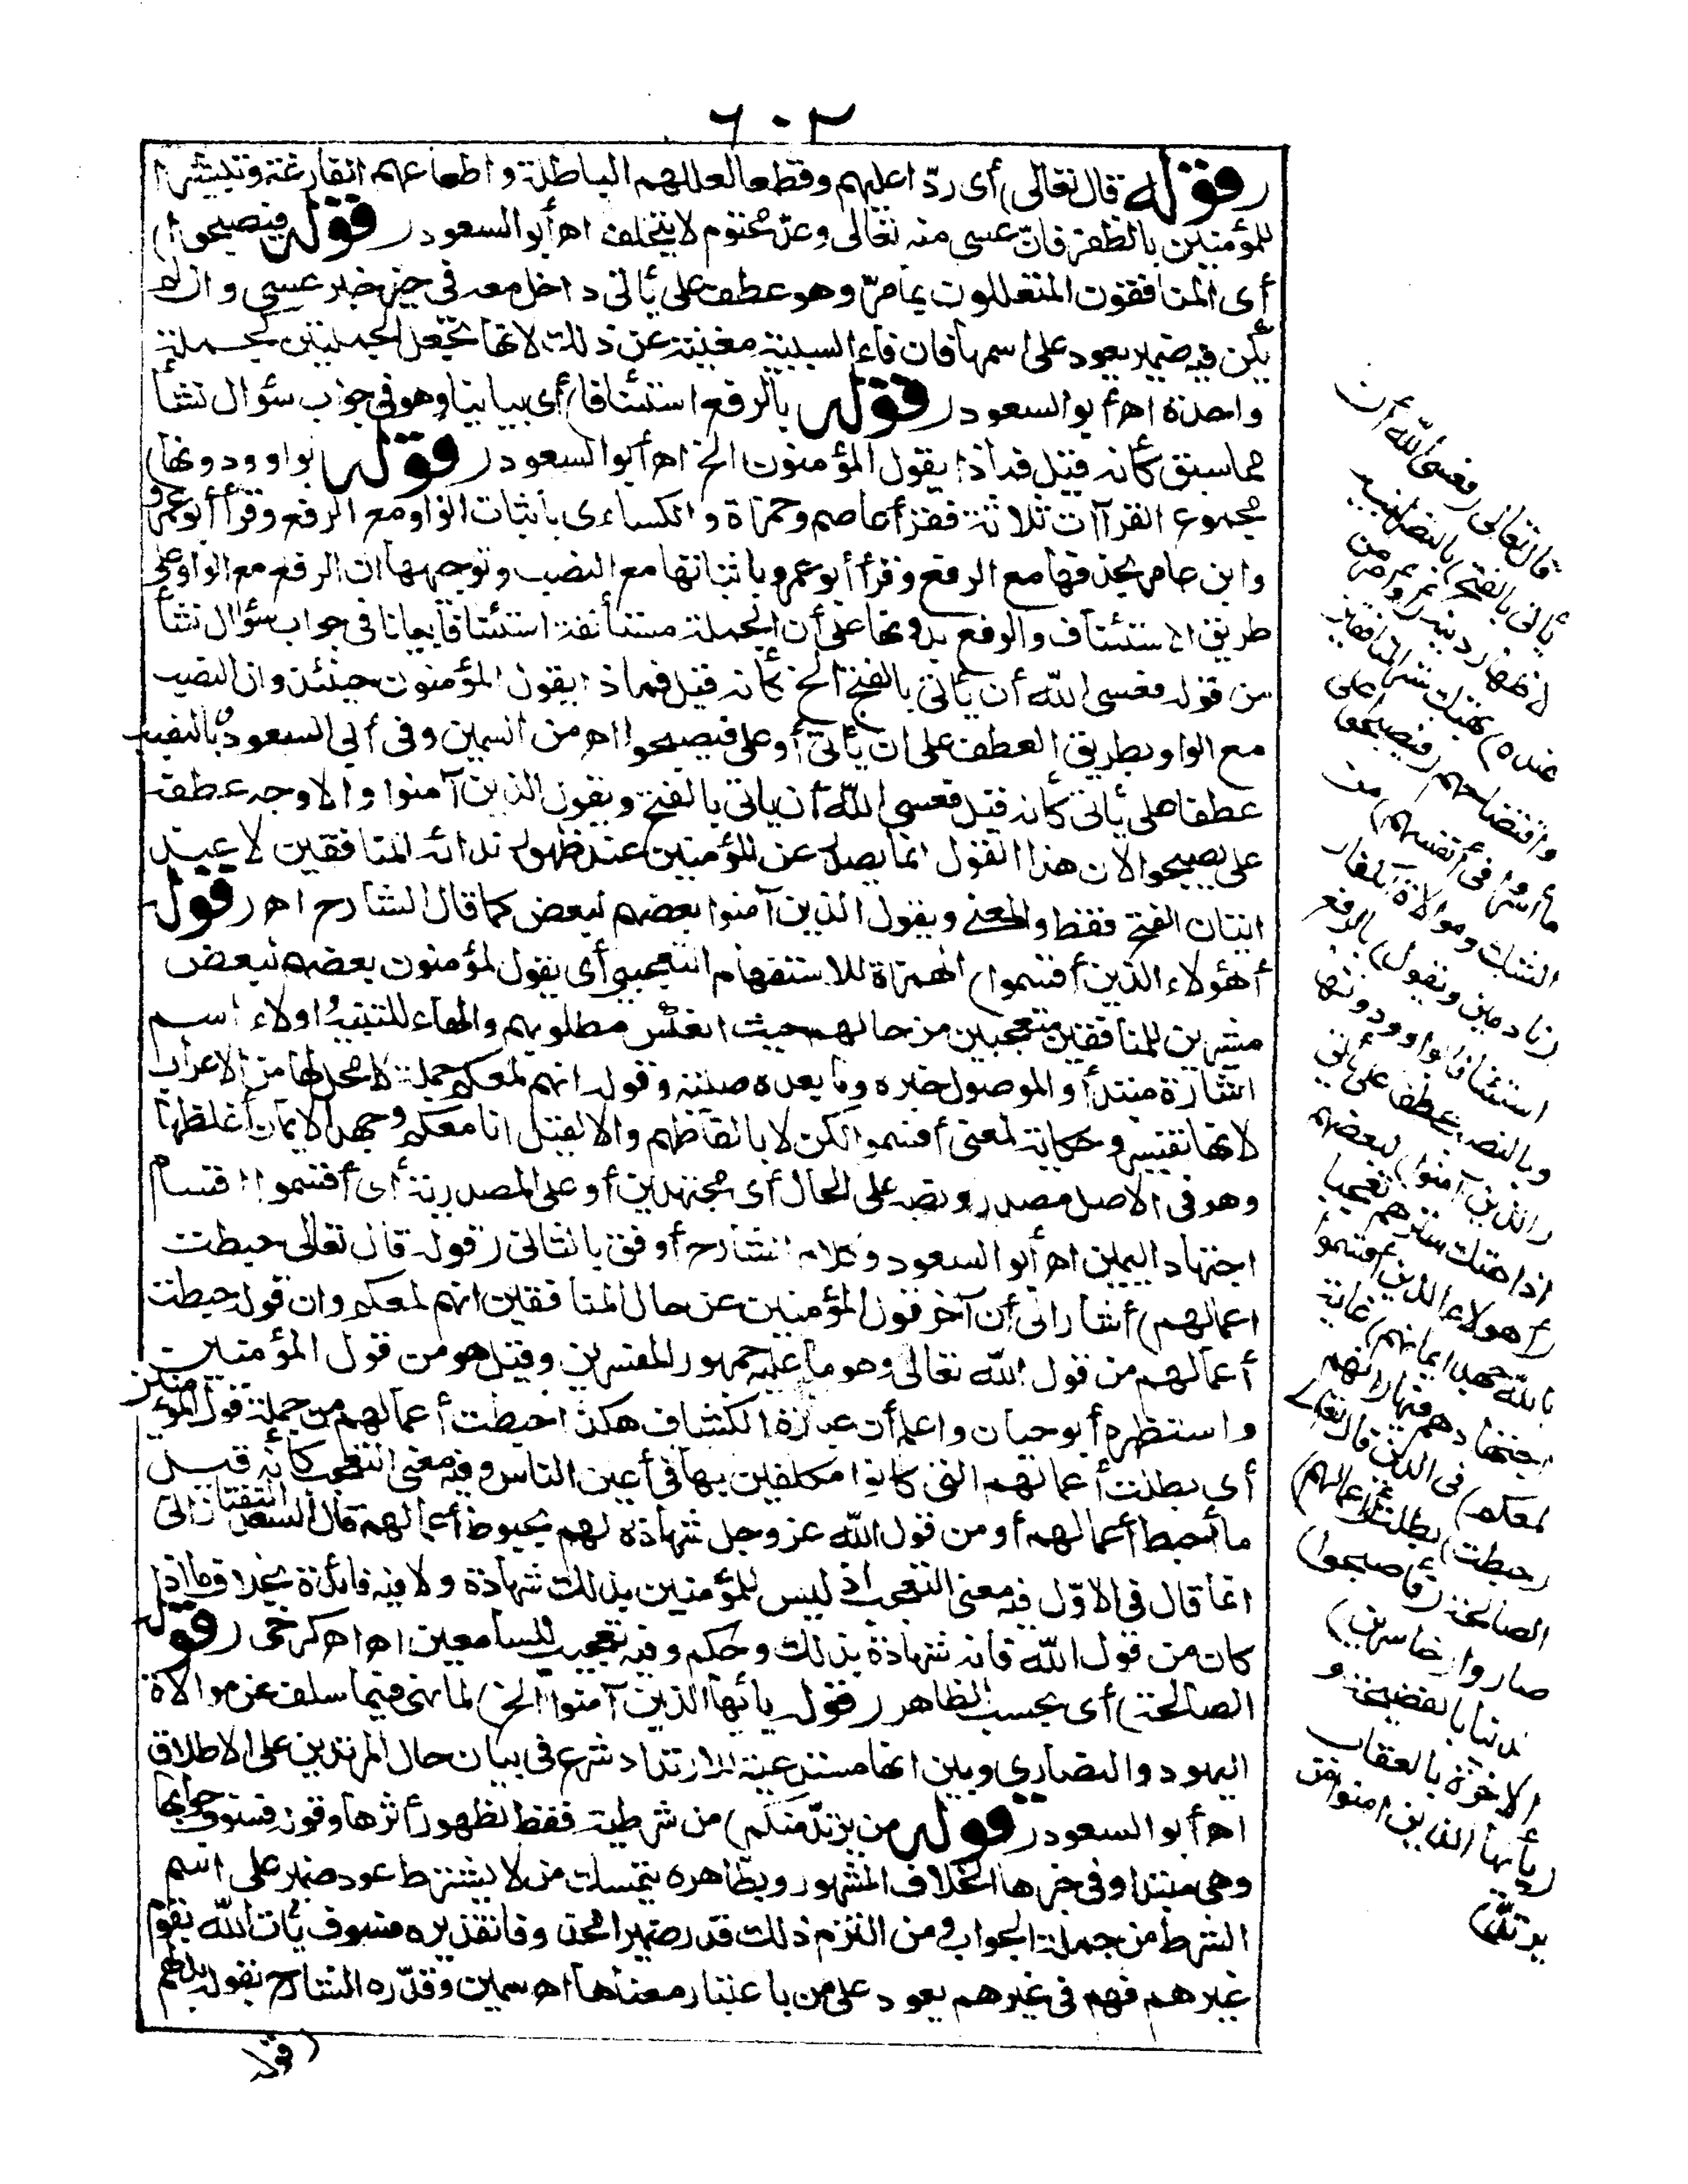 ٦٠٢
(قوله قال تعالى) أى ردّا عليهم وقطعا لعللهم الباطلة واطماعهم الفارغة وتبشيرا
للمؤمنين بالظفر فانّ عسى منه تعالى وعد محتوم لا يتخلف اه أبو السعود (قوله فيصبحوا)
أى المنافقون المتعللون بما مرّ وهو عطف على يأتى داخل معه فى حيز خبر عسى وان لم
يكن فيه ضمير يعود على اسمها فان فاء السببية مغنية عن ذلك لانها تجعل الجملتين كجملة
واحدة اه أبو السعود (قوله بالرفع استئنافا) أى بيانيا وهو فى جواب سؤال نشأ
مما سبق كأنه قيل فماذا يقول المؤمنون الخ اه أبو السعود (قوله بواو ودونها)
مجموع القرآات ثلاثة فقرأ عاصم وحمزة والكسائى باثبات الواو مع الرفع وقرأ أبو عمرو
وابن عامر بحذفها مع الرفع وقرأ أبو عمرو باثباتها مع النصب وتوجيهها ان الرفع مع الواو على
طريق الاستئناف والرفع بدونها على أن الجملة مستأنفة استئنافا بيانا فى جواب سؤال نشأ
من قوله فعسى الله أن يأتى بالفتح الخ كأنه قيل فماذا يقول المؤمنون حينئذ وان النصب
مع الواو بطريق العطف على ان يأتى أو على فيصبحوا اه من السمين وفى أبى السعود وبالنصب
عطفا على يأتى كأنه قيل فعسى الله أن يأتى بالفتح ويقول الذين آمنوا والاوجه عطفه
على يصبحوا لان هذا القول انما يصدر عن المؤمنين عند ظهور ندامة المنافقين لا عند
اتيان الفتح فقط والمعنى ويقول الذين آمنوا بعضهم لبعض كما قال الشارح اه (قوله
أهؤلاء الذين أقسموا) الهمزة للاستفهام التعجبى أى يقول المؤمنون بعضهم لبعض
مشيرين للمنافقين متعجبين من حالهم حيث انعكس مطلوبهم والهاء للتنبيه اولاء اسم
اشارة مبتدأ والموصول خبره وما بعده صلته وقوله انهم لمعكم جملة لا محل لها من الاعراب
لانها تفسير وحكاية لمعنى أقسموا لكن لا بالفاظهم والا لقيل انا معكم وجهد الايمان أغلظها
وهو فى الاصل مصدر ونصبه على الحال أى مجتهدين أو على المصدرية أى أقسموا اقسام
اجتهاد اليمين اه أبو السعود وكلام الشارح أوفق بالثانى (قوله قال تعالى حبطت
اعمالهم) أشار الى أن آخر قول المؤمنين عن حال المنافقين انهم لمعكم وان قوله حبطت
أعمالهم من قول الله تعالى وهو ما عليه جمهور المفسرين وقيل هو من قول المؤمنين
واستظهره أبو حيان واعلم أن عبارة الكشاف هكذا حبطت أعمالهم من جملة قول المؤمنين
أى بطلت أعمالهم التى كانوا مكلفين بها فى أعين الناس وفيه معنى التعجب كأنه قيل
ما أحبط أعمالهم أو من قول الله عز وجل شهادة لهم بحبوط أعمالهم قال السعد التفتازانى
انما قال فى الاوّل فيه معنى التعجب اذ ليس للمؤمنين بذلك شهادة ولا فيه فائدة بخلاف ما اذا
كان من قول الله فانه شهادة بذلك وحكم وفيه تعجيب للسامعين اه اه كرخى (قوله
الصالحة) أى بحسب الظاهر (قوله يأيها الذين آمنوا الخ) لما نهى فيما سلف عن موالاة
اليهود والنصارى وبين انها مستدعية للارتداد شرع فى بيان حال المرتدين على الاطلاق
اه أبو السعود (قوله من يرتدّ منكم) من شرطية فقط لظهور أثرها وقوله فسوف جوابها
وهى مبتدا وفى خبرها الخلاف المشهور وبظاهره يتمسك من لا يشترط عود ضمير على اسم
الشرط من جملة الجواب ومن التزم ذلك قدّر ضميرا محذوفا تقديره فسوف يأت الله بقوم
غيرهم فهم فى غيرهم يعود على من باعتبار معناها اه سمين وقدّره الشارح بقوله بدلهم
(قوله
قال تعالى (فعسى الله أن
يأتى بالفتح) بالنصر لنبيه
لاظهار دينه (أو أمر من
عنده) بهتك ستر المنافقين
وافتضاحهم (فيصبحوا على
ما أسروا فى أنفسهم) من
الشك وموالاة الكفار
(نادمين ويقول) بالرفع
استئنافا بواو ودونها
وبالنصب عطفا على يأتى
(الذين آمنوا) لبعضهم
اذا هتك سترهم تعجبا
(أهؤلاء الذين أقسموا
بالله جهد ايمانهم) غاية
اجتهادهم فيها (انهم
لمعكم) فى الدين قال تعالى
(حبطت) بطلت (أعمالهم)
الصالحة (فأصبحوا)
صاروا (خاسرين)
الدنيا بالفضيحة و
الآخرة بالعقاب
(يأيها الذين آمنوا من
يرتدّ)